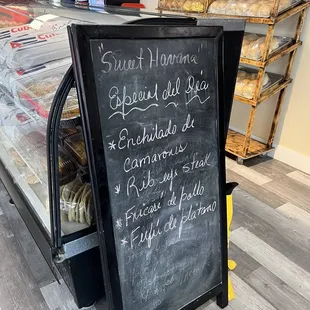 "Sweet Havana"
Especial del Dia
* Enchilado de
camarones
* Rib-eye steak
* Fricasé de pollo
* Fufú de platano